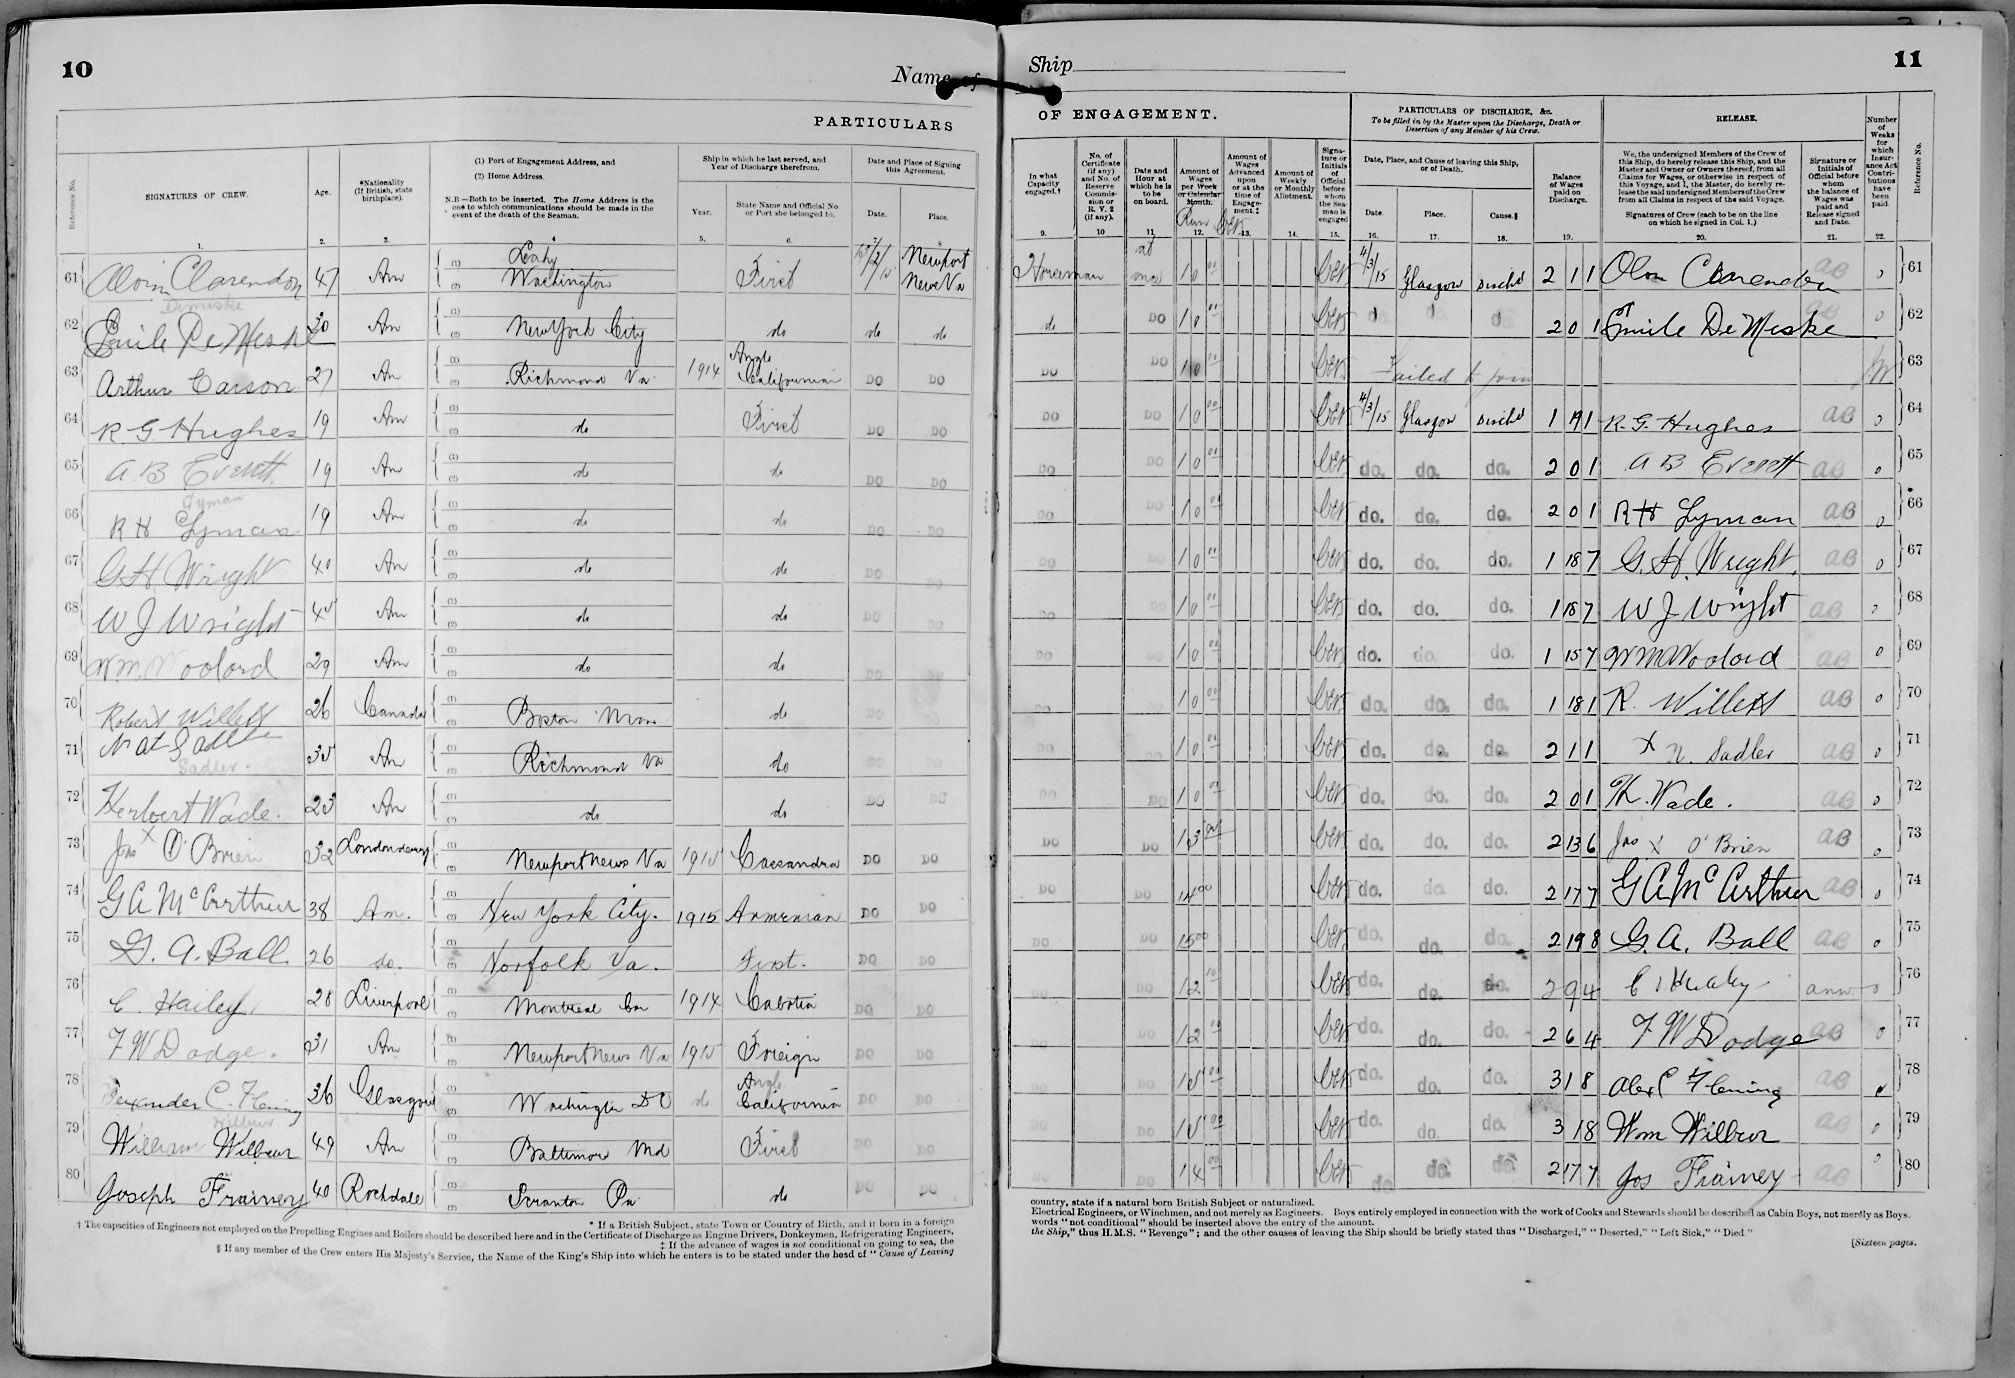 10
Name of
PARTICULARS
Reference No.
SIGNATURES OF CREW.
Age.
*Nationality (If British, state birthplace).
(1) Port of Engagement Address, and
(2) Home Address.
N.B.—Both to be inserted. The Home Address is the one to which communications should be made in the event of the death of the Seaman.
Ship in which he last served, and Year of Discharge therefrom.
Year.
State Name and Official No or Port she belonged to.
Date and Place of Signing this Agreement.
Date.
Place.
1. 2. 3. 4. 5. 6. 7. 8.
61 Clarendon 47 Am Washington First Newport News Va
Demiske
62 Emile De Meske 30 Am New York City do do do
63 Arthur Carson 27 Am Richmond Va 1914 Anglo Californian DO DO
64 R. G. Hughes 19 Am do First DO DO
65 A. B Everett 19 Am do do DO DO
Gyman
66 R H Lyman 19 Am do do DO DO
67 G H Wright 40 Am do do DO DO
68 W J Wright 45 Am do do DO DO
69 Wm. Woolard 29 Am do do DO DO
70 Robert Willett 26 Canada Boston Mass do DO DO
71 Nat Sadler 35 Am Richmond Va do DO DO
Sadler.
72 Herbert Wade. 23 Am do do DO DO
73 Jas X O'Brien 32 Londonderry Newport News Va 1915 Cassandra DO DO
74 G A McArthur 38 Am. New York City. 1915 Armenian DO DO
75 G. A. Ball. 26 do. Norfolk Va. First. DO DO
76 C. Hailey 28 Liverpool Montreal Can 1914 Cabotia DO DO
77 F W Dodge. 31 Am Newport News Va 1915 Foreign DO DO
78 Alexander C. Fleming 36 Glasgow Washington DC do Anglo Californian DO DO
Wilbur
79 William Wilbur 49 Am Baltimore Md First DO DO
80 Joseph Frainey 40 Rochdale Scranton Pa do DO DO
* If a British Subject, state Town or Country of Birth, and if born in a foreign
† The capacities of Engineers not employed on the Propelling Engines and Boilers should be described here and in the Certificate of Discharge as Engine Drivers, Donkeymen, Refrigerating Engineers,
‡ If the advance of wages is not conditional on going to sea, the
§ If any member of the Crew enters His Majesty's Service, the Name of the King's Ship into which he enters is to be stated under the head of "Cause of Leaving
Ship
11
OF ENGAGEMENT.
PARTICULARS OF DISCHARGE, &c.
To be filled in by the Master upon the Discharge, Death or Desertion of any Member of his Crew.
RELEASE.
Number of Weeks for which Insurance Act Contributions have been paid.
Reference No.
In what Capacity engaged.†
No. of Certificate (if any) and No. of Reserve Commission or R. V. 2 (if any).
Date and Hour at which he is to be on board.
Amount of Wages per Week or Calendar Month.
Run
Amount of Wages Advanced upon or at the time of Engagement.‡
Amount of Weekly or Monthly Allotment.
Signature or Initials of Official before whom the Seaman is engaged
Date, Place, and Cause of leaving this Ship, or of Death.
Date.
Place.
Cause.§
Balance of Wages paid on Discharge.
We, the undersigned Members of the Crew of this Ship, do hereby release this Ship, and the Master and Owner or Owners thereof, from all Claims for Wages, or otherwise in respect of this Voyage, and I, the Master, do hereby release the said undersigned Members of the Crew from all Claims in respect of the said Voyage.
Signatures of Crew (each to be on the line on which he signed in Col. 1.)
Signature or Initials of Official before whom the balance of Wages was paid and Release signed and Date.
9. 10 11. 12. 13. 14. 15. 16. 17. 18. 19. 20. 21. 22.
Horseman at once 10 00 4/3/15 Glasgow Disch'd 2 1 1 Clarendon AB 0 61
do DO 10 00 2 0 1 Emile De Meske AB 0 62
DO DO 10 00 Failed to join 63
DO DO 10 00 4/3/15 Glasgow Disch'd 1 19 1 R. G. Hughes AB 0 64
DO DO 10 00 do. do. do. 2 0 1 A B Everett AB 0 65
DO DO 10 00 do. do. do. 2 0 1 R H Lyman AB 0 66
DO DO 10 00 do. do. do. 1 18 7 G. H. Wright. AB 0 67
DO DO 10 00 do. do. do. 1 18 7 W J Wright AB 0 68
DO DO 10 00 do. do. do. 1 15 7 Wm Woolard AB 0 69
DO DO 10 00 do. do. do. 1 18 1 R. Willett AB 0 70
DO DO 10 00 do. do. do. 2 1 1 X N. Sadler AB 0 71
DO DO 10 00 do. do. do. 2 0 1 H. Wade. AB 0 72
DO DO 13 do. do. do. 2 13 6 Jas X O'Brien AB 0 73
DO DO 14 00 do. do. do. 2 17 7 G A McArthur AB 0 74
DO DO 15 00 do. do. do. 2 19 8 G. A. Ball AB 0 75
DO DO 12 10 do. do. do. 2 9 4 C 0 76
DO DO 12 00 do. do. do. 2 6 4 F W Dodge AB 0 77
DO DO 15 00 do. do. do. 3 1 8 Alex C Fleming AB 78
DO DO 15 00 do. do. do. 3 1 8 Wm Wilbur AB 0 79
DO DO 14 00 do do. do. 2 17 7 Jos Frainey AB 0 80
country, state if a natural born British Subject or naturalized.
Electrical Engineers, or Winchmen, and not merely as Engineers. Boys entirely employed in connection with the work of Cooks and Stewards should be described as Cabin Boys, not merely as Boys.
words "not conditional" should be inserted above the entry of the amount.
the Ship," thus H.M.S. "Revenge"; and the other causes of leaving the Ship should be briefly stated thus "Discharged," "Deserted," "Left Sick," "Died."
[Sixteen pages.